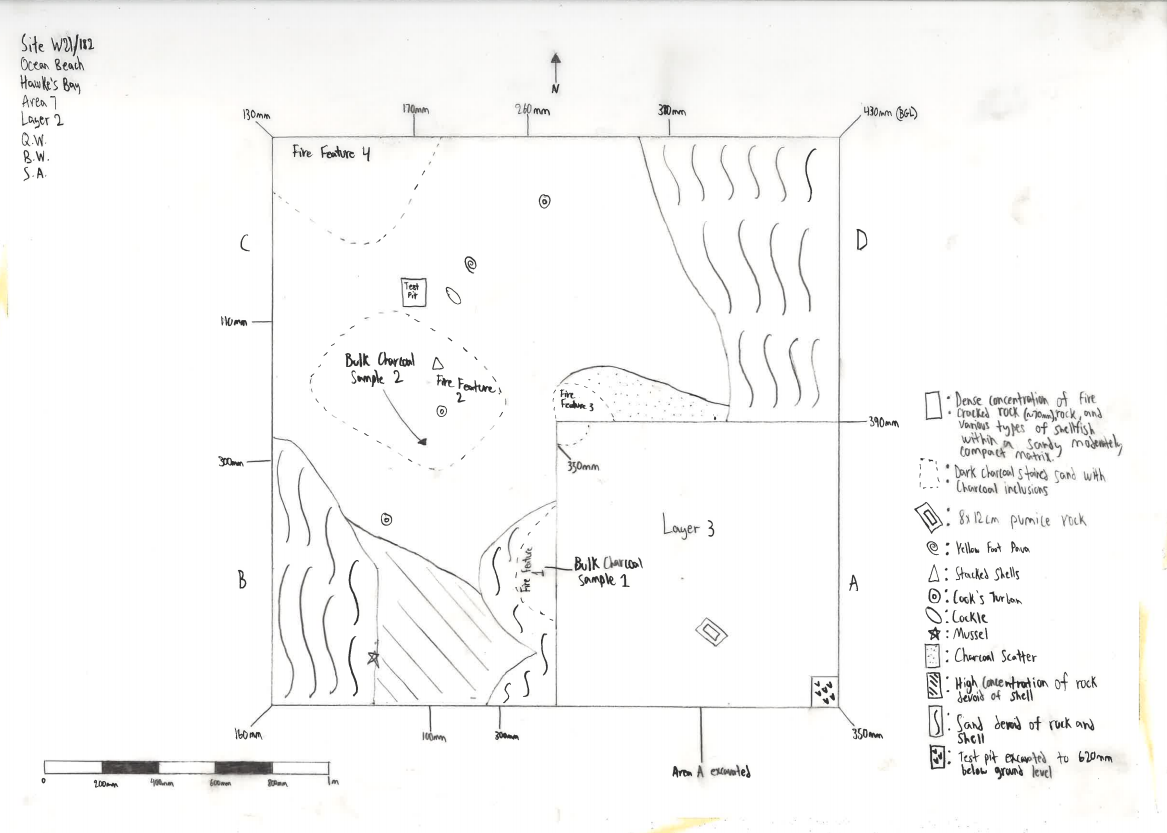 Site W21/182
Ocean Beach
Hawke's Bay
Area 7
Layer 2
Q.W.
B.W.
S.A.
N
130mm
170mm
260mm
430mm (BGL)
Fire Feature 4
C
D
Test
Pit
110mm
Bulk Charcoal
Sample 2
Fire Feature
2
Fire
Feature 3
390mm
300mm
350mm
Layer 3
Fire Feature
1
Bulk Charcoal
Sample 1
B
A
160mm
100mm
300mm
350mm
Area A excavated
0
200mm
400mm
600mm
800mm
1m
: Dense concentration of fire
cracked rock (~70mm), rock, and
various types of shellfish
within a sandy moderately
compact matrix.
: Dark charcoal stained sand with
Charcoal inclusions
: 8x12cm pumice rock
: Yellow Foot Paua
: Stacked Shells
: Cook's Turban
: Cockle
: Mussel
: Charcoal Scatter
: High Concentration of rock
devoid of shell
: Sand devoid of rock and
Shell
: Test pit excavated to 620mm
below ground level